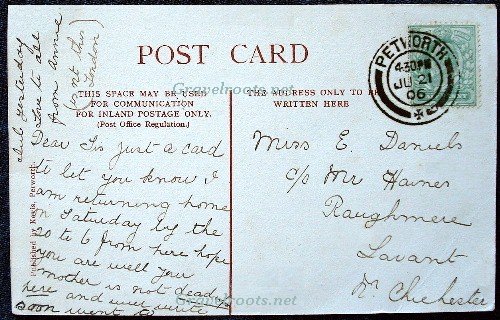 POST CARD
THIS SPACE MAY BE USED
FOR COMMUNICATION
FOR INLAND POSTAGE ONLY.
(Post Office Regulation.)
THE ADDRESS ONLY TO BE
WRITTEN HERE
Gravelroots.net
PETWORTH
4.30PM
JU 21
06
Dear Sis just a card
to let you know I
am returning home
on Saturday by the
20 to 6 from here hope
you are well your
mother is not dead
here and
soon went to
yesterday
love to all
from Annie
London)
Miss E. Daniels
c/o Mr Haines
Raughmere
Lavant
Nr Chichester
Published by Kevis, Petworth.
Gravelroots.net